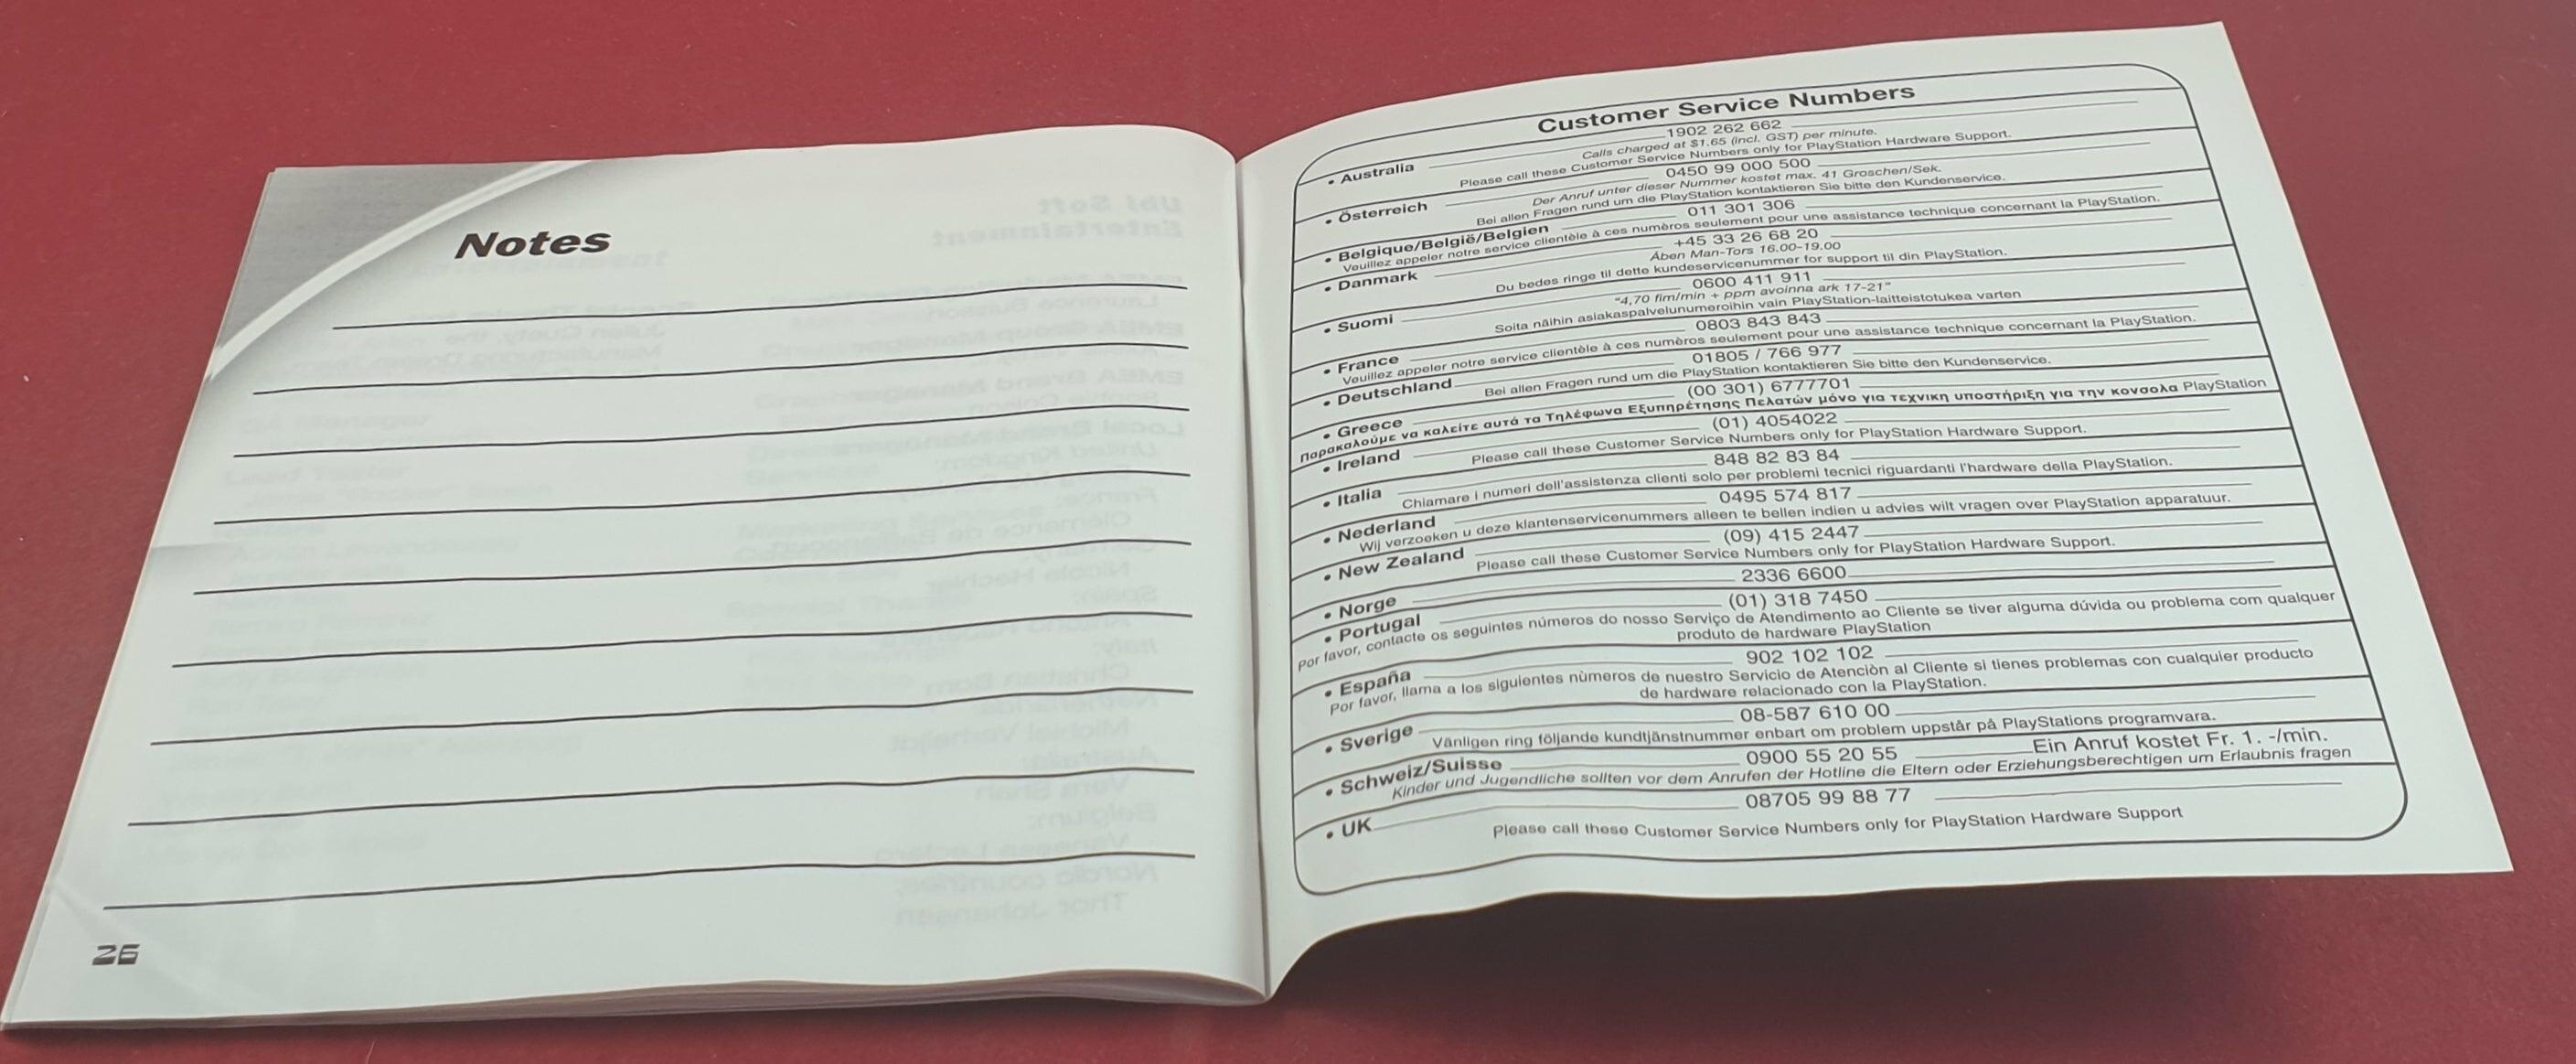 Notes
26
Customer Service Numbers
• Australia 1902 262 662
Calls charged at $1.65 (incl. GST) per minute.
Please call these Customer Service Numbers only for PlayStation Hardware Support.
• Österreich 0450 99 000 500
Der Anruf unter dieser Nummer kostet max. 41 Groschen/Sek.
Bei allen Fragen rund um die PlayStation kontaktieren Sie bitte den Kundenservice.
• Belgique/België/Belgien 011 301 306
Veuillez appeler notre service clientèle à ces numèros seulement pour une assistance technique concernant la PlayStation.
• Danmark +45 33 26 68 20
Åben Man-Tors 16.00-19.00
Du bedes ringe til dette kundeservicenummer for support til din PlayStation.
• Suomi 0600 411 911
"4,70 fim/min + ppm avoinna ark 17-21"
Soita näihin asiakaspalvelunumeroihin vain PlayStation-laitteistotukea varten
• France 0803 843 843
Veuillez appeler notre service clientèle à ces numèros seulement pour une assistance technique concernant la PlayStation.
• Deutschland 01805 / 766 977
Bei allen Fragen rund um die PlayStation kontaktieren Sie bitte den Kundenservice.
• Greece (00 301) 6777701
Παρακαλούμε να καλείτε αυτά τα Τηλέφωνα Εξυπηρέτησης Πελατών μόνο για τεχνικη υποστήριξη για την κονσολα PlayStation
• Ireland (01) 4054022
Please call these Customer Service Numbers only for PlayStation Hardware Support.
• Italia 848 82 83 84
Chiamare i numeri dell'assistenza clienti solo per problemi tecnici riguardanti l'hardware della PlayStation.
• Nederland 0495 574 817
Wij verzoeken u deze klantenservicenummers alleen te bellen indien u advies wilt vragen over PlayStation apparatuur.
• New Zealand (09) 415 2447
Please call these Customer Service Numbers only for PlayStation Hardware Support.
• Norge 2336 6600
• Portugal (01) 318 7450
Por favor, contacte os seguintes números do nosso Serviço de Atendimento ao Cliente se tiver alguma dúvida ou problema com qualquer
produto de hardware PlayStation
• España 902 102 102
Por favor, llama a los siguientes nùmeros de nuestro Servicio de Atenciòn al Cliente si tienes problemas con cualquier producto
de hardware relacionado con la PlayStation.
• Sverige 08-587 610 00
Vänligen ring följande kundtjänstnummer enbart om problem uppstår på PlayStations programvara.
• Schweiz/Suisse 0900 55 20 55 Ein Anruf kostet Fr. 1. -/min.
Kinder und Jugendliche sollten vor dem Anrufen der Hotline die Eltern oder Erziehungsberechtigen um Erlaubnis fragen
• UK 08705 99 88 77
Please call these Customer Service Numbers only for PlayStation Hardware Support